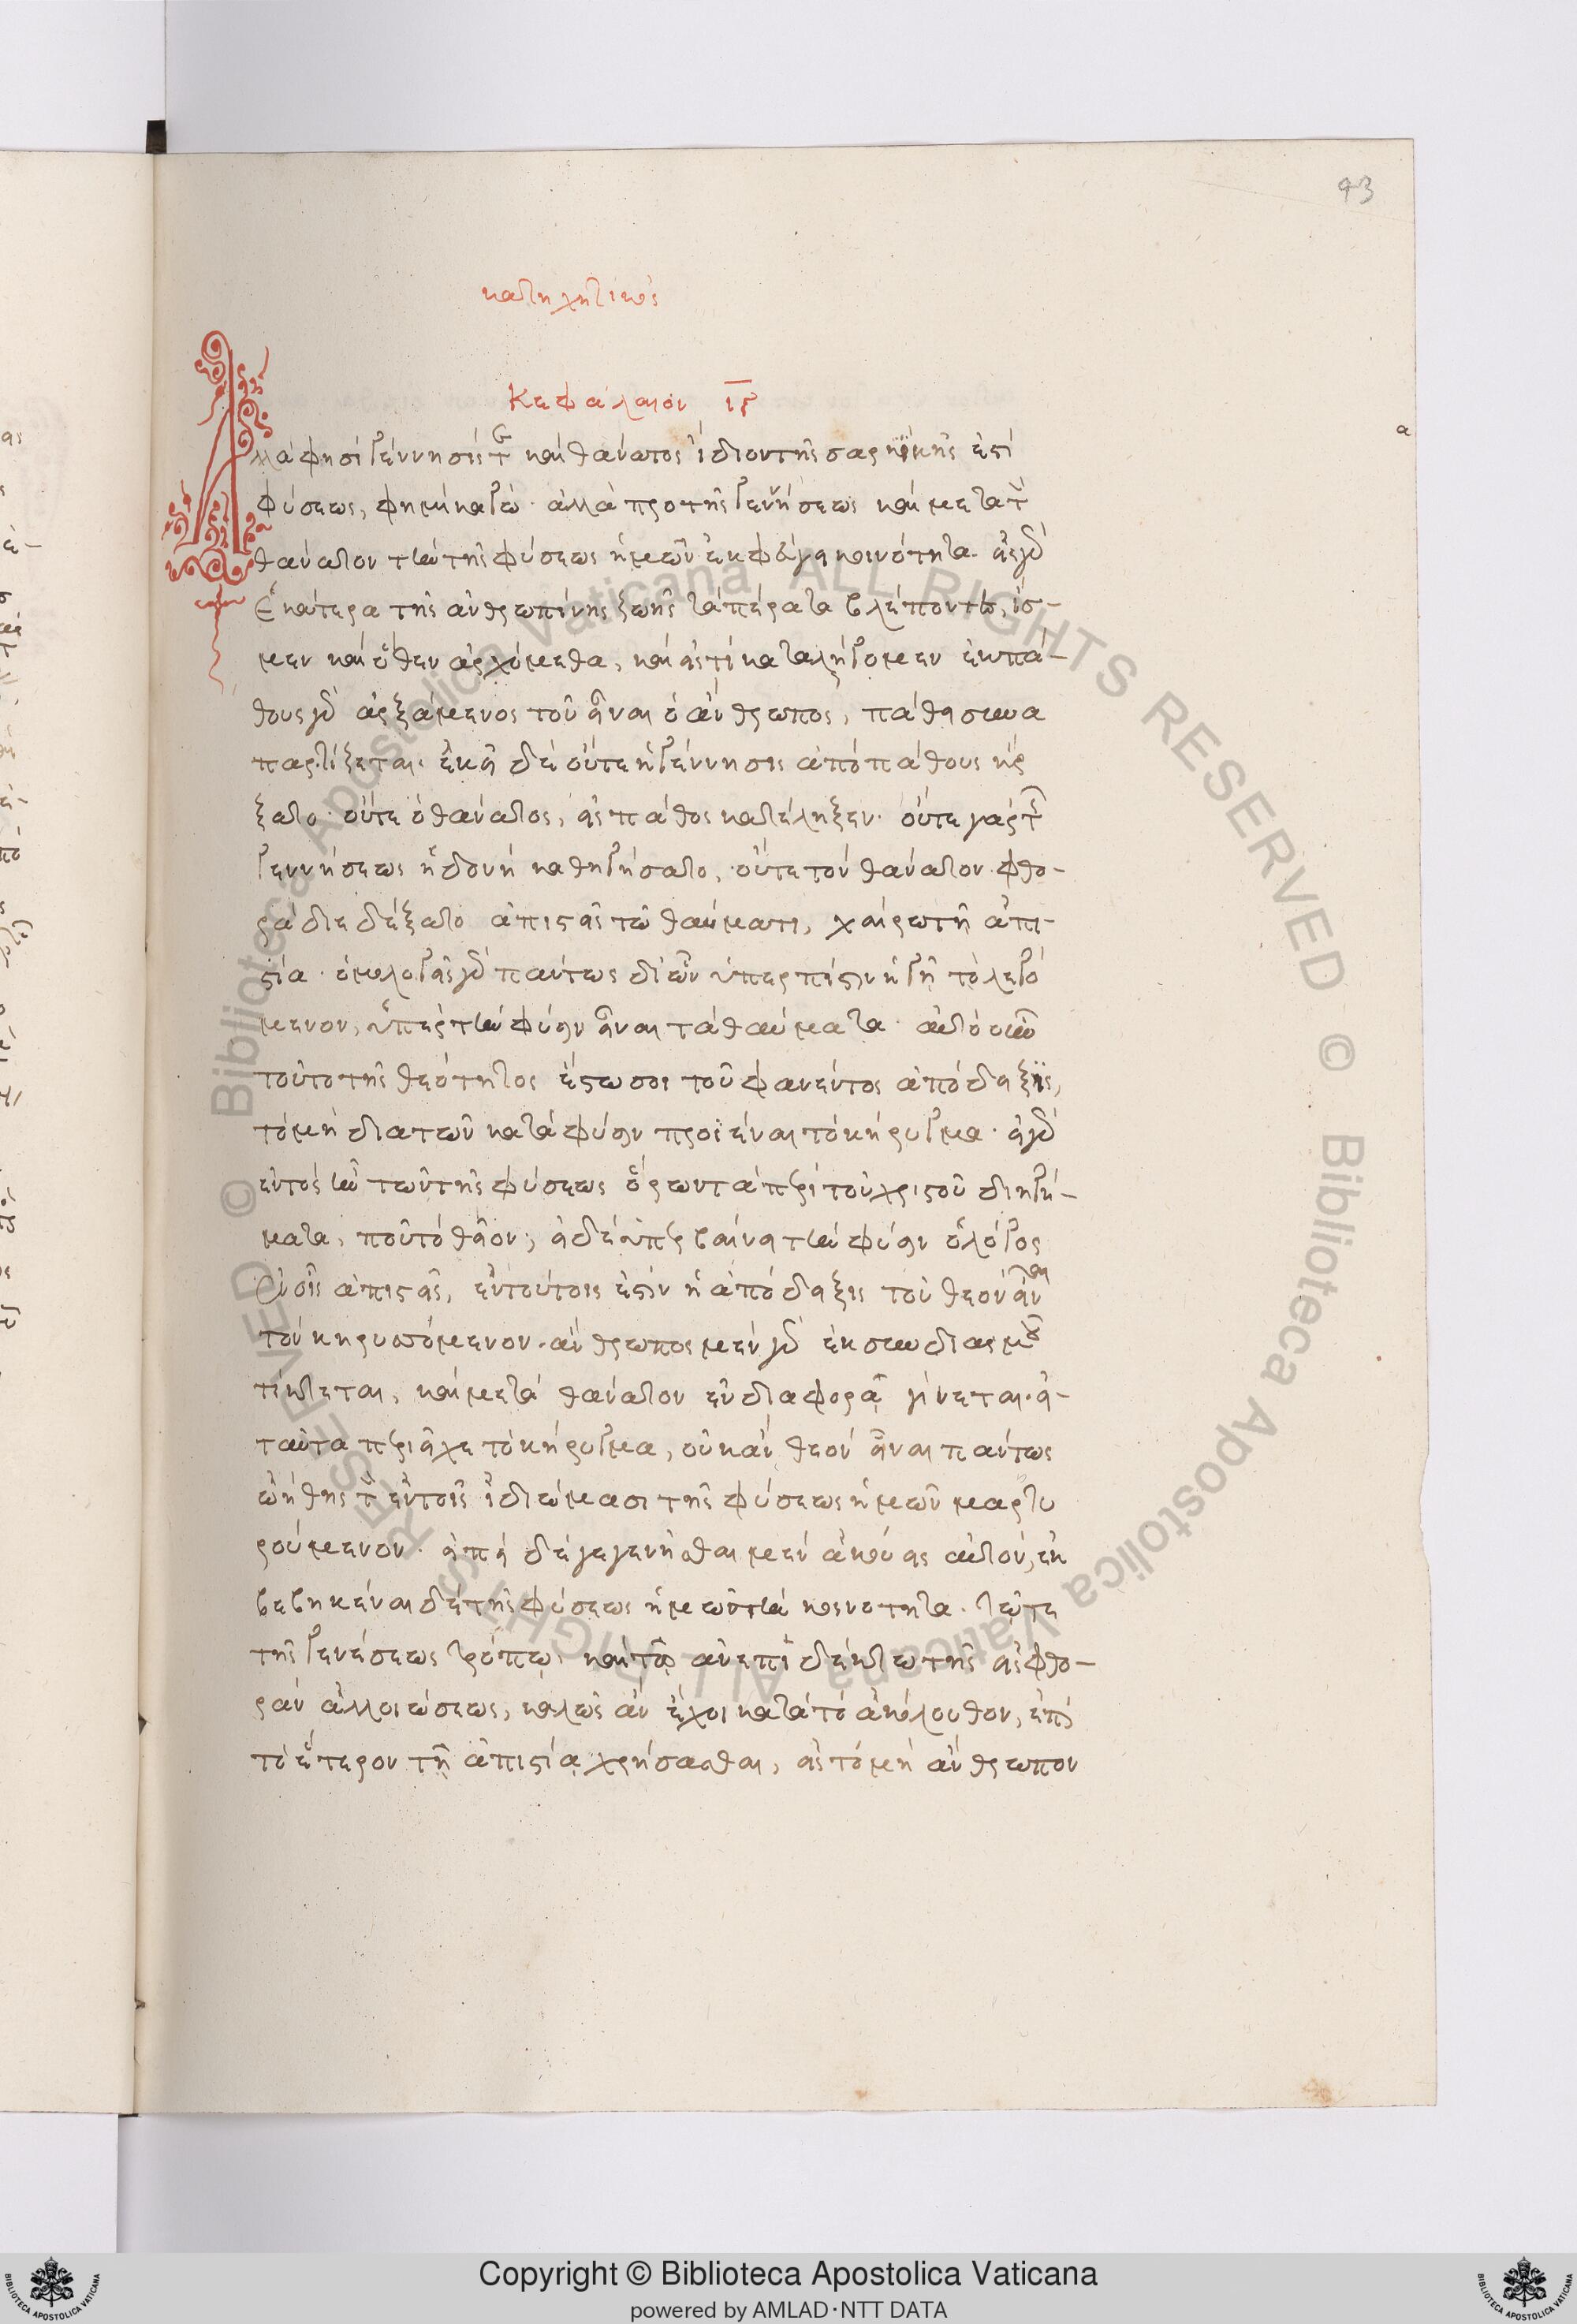 93
κατηχητικός
Κεφάλαιον ιγ
Ἀλλά φησι γέννησίς τε καὶ θάνατος ἴδιον τῆς σαρκικῆς ἐστὶ
φύσεως, φημὶ κἀγώ· ἀλλὰ πρὸ τῆς γεννήσεως καὶ μετὰ τὸν
θάνατον τὴν τῆς φύσεως ἡμῶν ἐκφεύγει κοινότητα. εἰς γὰρ
ἑκάτερα τῆς ἀνθρωπίνης ζωῆς τὰ πέρατα βλέποντες, ἴσ-
μεν καὶ ὅθεν ἀρχόμεθα, καὶ εἰς τί καταλήγομεν ἐκ πά-
θους γὰρ ἀρξάμενος τοῦ εἶναι ὁ ἄνθρωπος, πάθει συνα
παρτίζεται. ἐκεῖ δὲ οὔτε ἡ γέννησις ἀπὸ πάθους ἤρ
ξατο· οὔτε ὁ θάνατος, εἰς πάθος κατέληξεν. οὔτε γὰρ τῆς
γεννήσεως ἡδονὴ καθηγήσατο, οὔτε τὸν θάνατον φθο-
ρὰ διεδέξατο ἀπιστεῖς τῷ θαύματι, χαίρω τῇ ἀπι-
στία· ὁμολογεῖς γὰρ πάντως δι' ὧν ὑπερ πίστιν ἡγῇ τὸ λεγό
μενον, ὑπὲρ τὴν φύσιν εἶναι τὰ θαύματα. αὐτὸ οὖν
τοῦτο τῆς θεότητος ἔστω σοι τοῦ φανέντος ἀπόδειξις,
τὸ μὴ διὰ τῶν κατὰ φύσιν προϊέναι τὸ κήρυγμα. εἰ γὰρ
ἐντὸς ἦν τῶν τῆς φύσεως ὅρων τὰ περὶ τοῦ χριστοῦ διηγή-
ματα, ποῦ τὸ θεῖον; εἰ δὲ ὑπερβαίνει τὴν φύσιν ὁ λόγος
ἐν οἷς ἀπιστεῖς, ἐν τούτοις ἐστὶν ἡ ἀπόδειξις τοῦ θεὸν εἶναι
τὸν κηρυσσόμενον. ἄνθρωπος μὲν γὰρ ἐκ συνδιασμοῦ
τίκτεται, καὶ μετὰ θάνατον ἐν διαφορᾷ γίνεται. εἰ
ταῦτα περιεῖχε τὸ κήρυγμα, οὐκ ἂν θεὸν εἶναι πάντως
ᾠήθης τὸν ἐν τοῖς ἰδιώμασι τῆς φύσεως ἡμῶν μαρτυ
ρούμενον. ἐπεὶ δὲ γεγενῆσθαι μὲν ἀκούεις αὐτόν, ἐκ
βεβηκέναι δὲ τῆς φύσεως ἡμῶν τὴν κοινότητα. τῷ τε
τῆς γενέσεως τρόπῳ, καὶ τῷ ἀνεπιδέκτω τῆς εἰς φθο-
ρὰν ἀλλοιώσεως, καλῶς ἂν ἔχοι κατὰ τὸ ἀκόλουθον, ἐπὶ
τὸ ἕτερον τῇ ἀπιστίᾳ χρήσασθαι, εἰς τὸ μὴ ἄνθρωπον